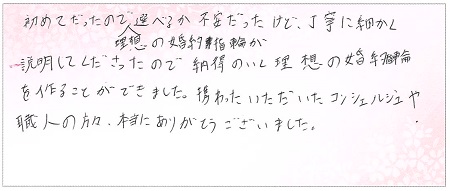 初めてだったので選べるか不安だったけど、丁寧に細かく
理想の婚約指輪が
説明してくださったので納得のいく理想の婚約指輪
を作ることができました。携わっていただいたコンシェルジュや
職人の方々、本当にありがとうございました。